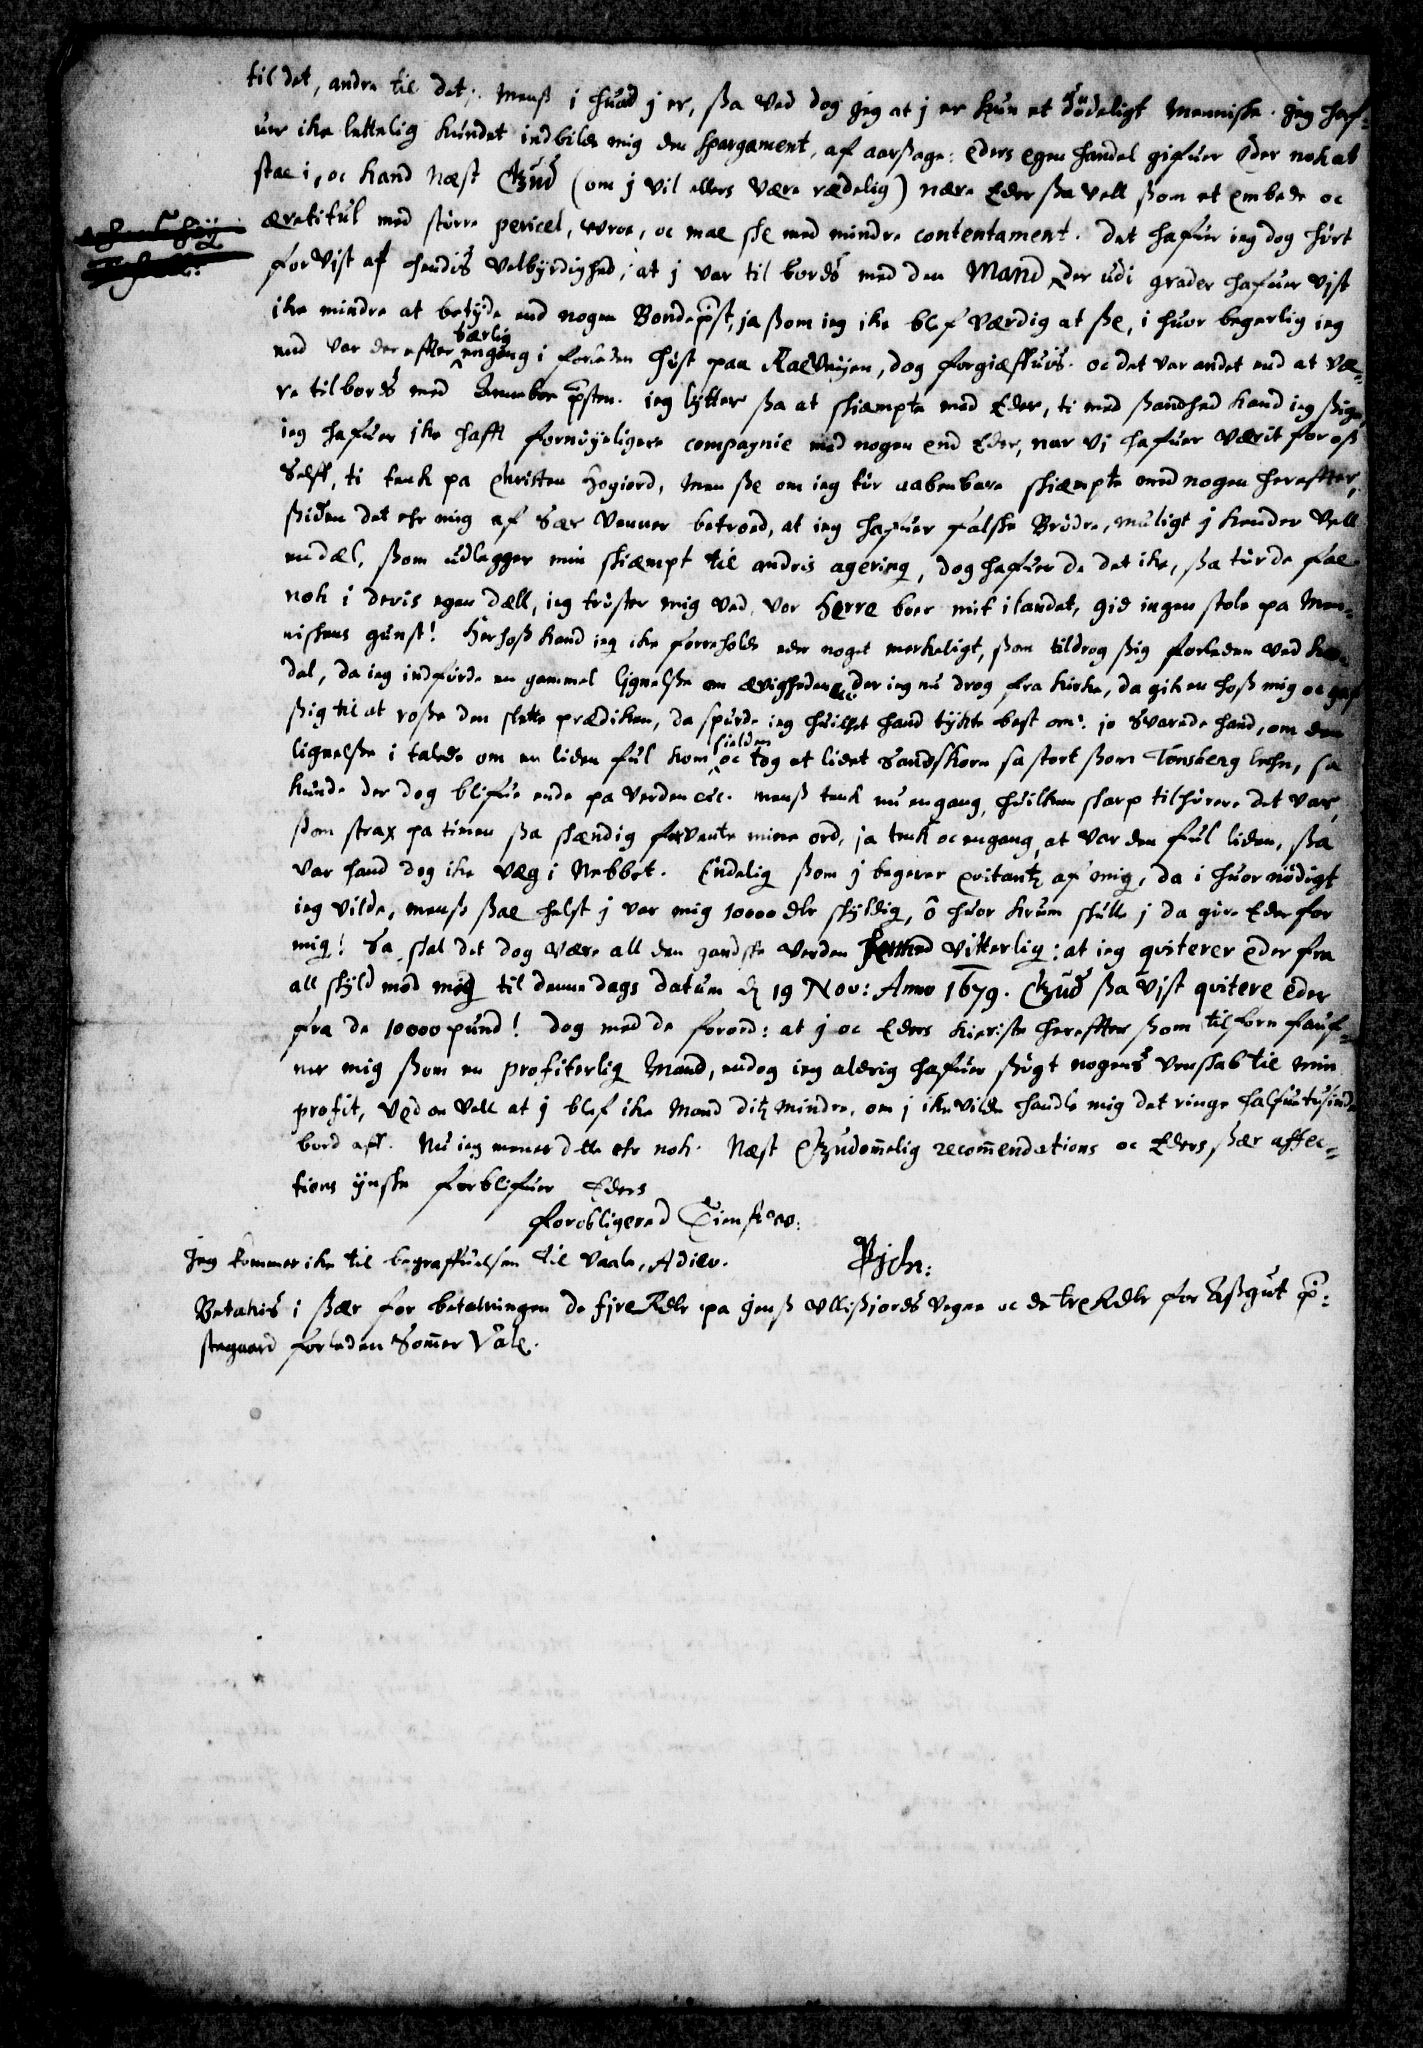 til det, andre til det; menß i huad j er, ßa ved dog jeg at j er kun et dödeligt menniske. Jeg haf-
uer ike lettelig kundet indbilde mig den spargament, af aarsage: eders egen handel gifuer Eder nok at
stae i, oc kand næst Gud (om j vil ellers være rædelig) nære Eder ßa vell ßom et embede oc
æretitul med större pericel, oc mae ske med mindre contentament. Det hafuer jeg dog hört
for vist af hendis velbyrdighed, at j var til bords med den Mand der udi grader hafuer vist
ike mindre at betyde end nogen Bondepst, ja ßom jeg ike blef værdig at ße, i huor begerlig jeg
end var der effter særlig engang i forleden höst paa Raevejen, dog forgiæffuis. oc det var andet end at væ-
re til bords med psten. jeg lyster ßa at skiæmpte med Eder, ti med ßandhed kand jeg ßige,
jeg hafuer ike hafft fornöyeligere compagnie med nogen end Eder, nar vj hafuer værit for oß
Selff, ti tenk pa Christen Hogiord, men ße om jeg tör aabenbare skiæmpte med nogen hereffter,
ßiden det ehr mig af Sær venner betroed, at jeg hafuer falske Brödre, muligt j kender vell
en dæl, ßom udlegger min skiæmpt til andris agering, dog hafuer de det ike, ßa törde fae
nok i deris egen dæll, jeg tröster mig ved, vor Herre boer mit i landet, gid ingen stole pa Men-
niskens gunst! Herhoß kand jeg ike forreholde eder noget merkeligt, ßom tildrog ßig forleden ved
dal, da jeg indförde en gammel lignelße om ævigheden, der jeg nu drog fra kirke, da gik en hoß mig oc gaf
ßig til at roße den slette prædiken, da spurde jeg huilket hand tykte best om: jo Svarede hand, om den
lignelße i talede om en liden ful kom sielden oc tog et lidet Sandskorn sa stort ßom Tönsberg lehn, sa
kunde der dog blifue ende pa verden etc. menß tenk nu engang, huilken skarp tilhörere det var,
ßom strax pa timen ßa skændig forvente mine ord, ja tenk oc engang, at var den ful liden, ßa
var hand dog ike væg i Nebbet. Endelig ßom j begerer qvitantz af mig, da i huor nödigt
jeg vilde, menß ßae helst j var mig 10000 dlr skyldig, ô huor krum skulle j da göre Eder for
mig! Sa skal det dog være all den gandske verden vitterlig: at jeg qviterer eder fra
all skyld mod mig til denne dags datum d. 19 Nov: Anno 1679. Gud ßa vist qvitere eder
fra de 10000 pund! Dog med de forord: at j oc Eders kieriste hereffter ßom tilforn
mig ßom en profiterlig Mand, endog jeg aldrig hafuer ßögt nogens venskab til min
profit, ved oc vell at j blef ike Mand ditz mindre, om j ike vilde handle mig det ringe halfuetusinde
bord aff. Nu jeg mener dette ehr nok. Næst Gudommelig recommendations oc Eders ßær affec-
tions ynske forblifuer Eders
forobligered Tienst
Jeg kommer ike til begraffuelsen til Vaale, Adieu.
Betakis i ßær for betalningen de fire Rdlr pa Jenß Ullisjords vegne oc de tre Rdlr for Aßgut p:
stegaard forleden Sommer Vale.